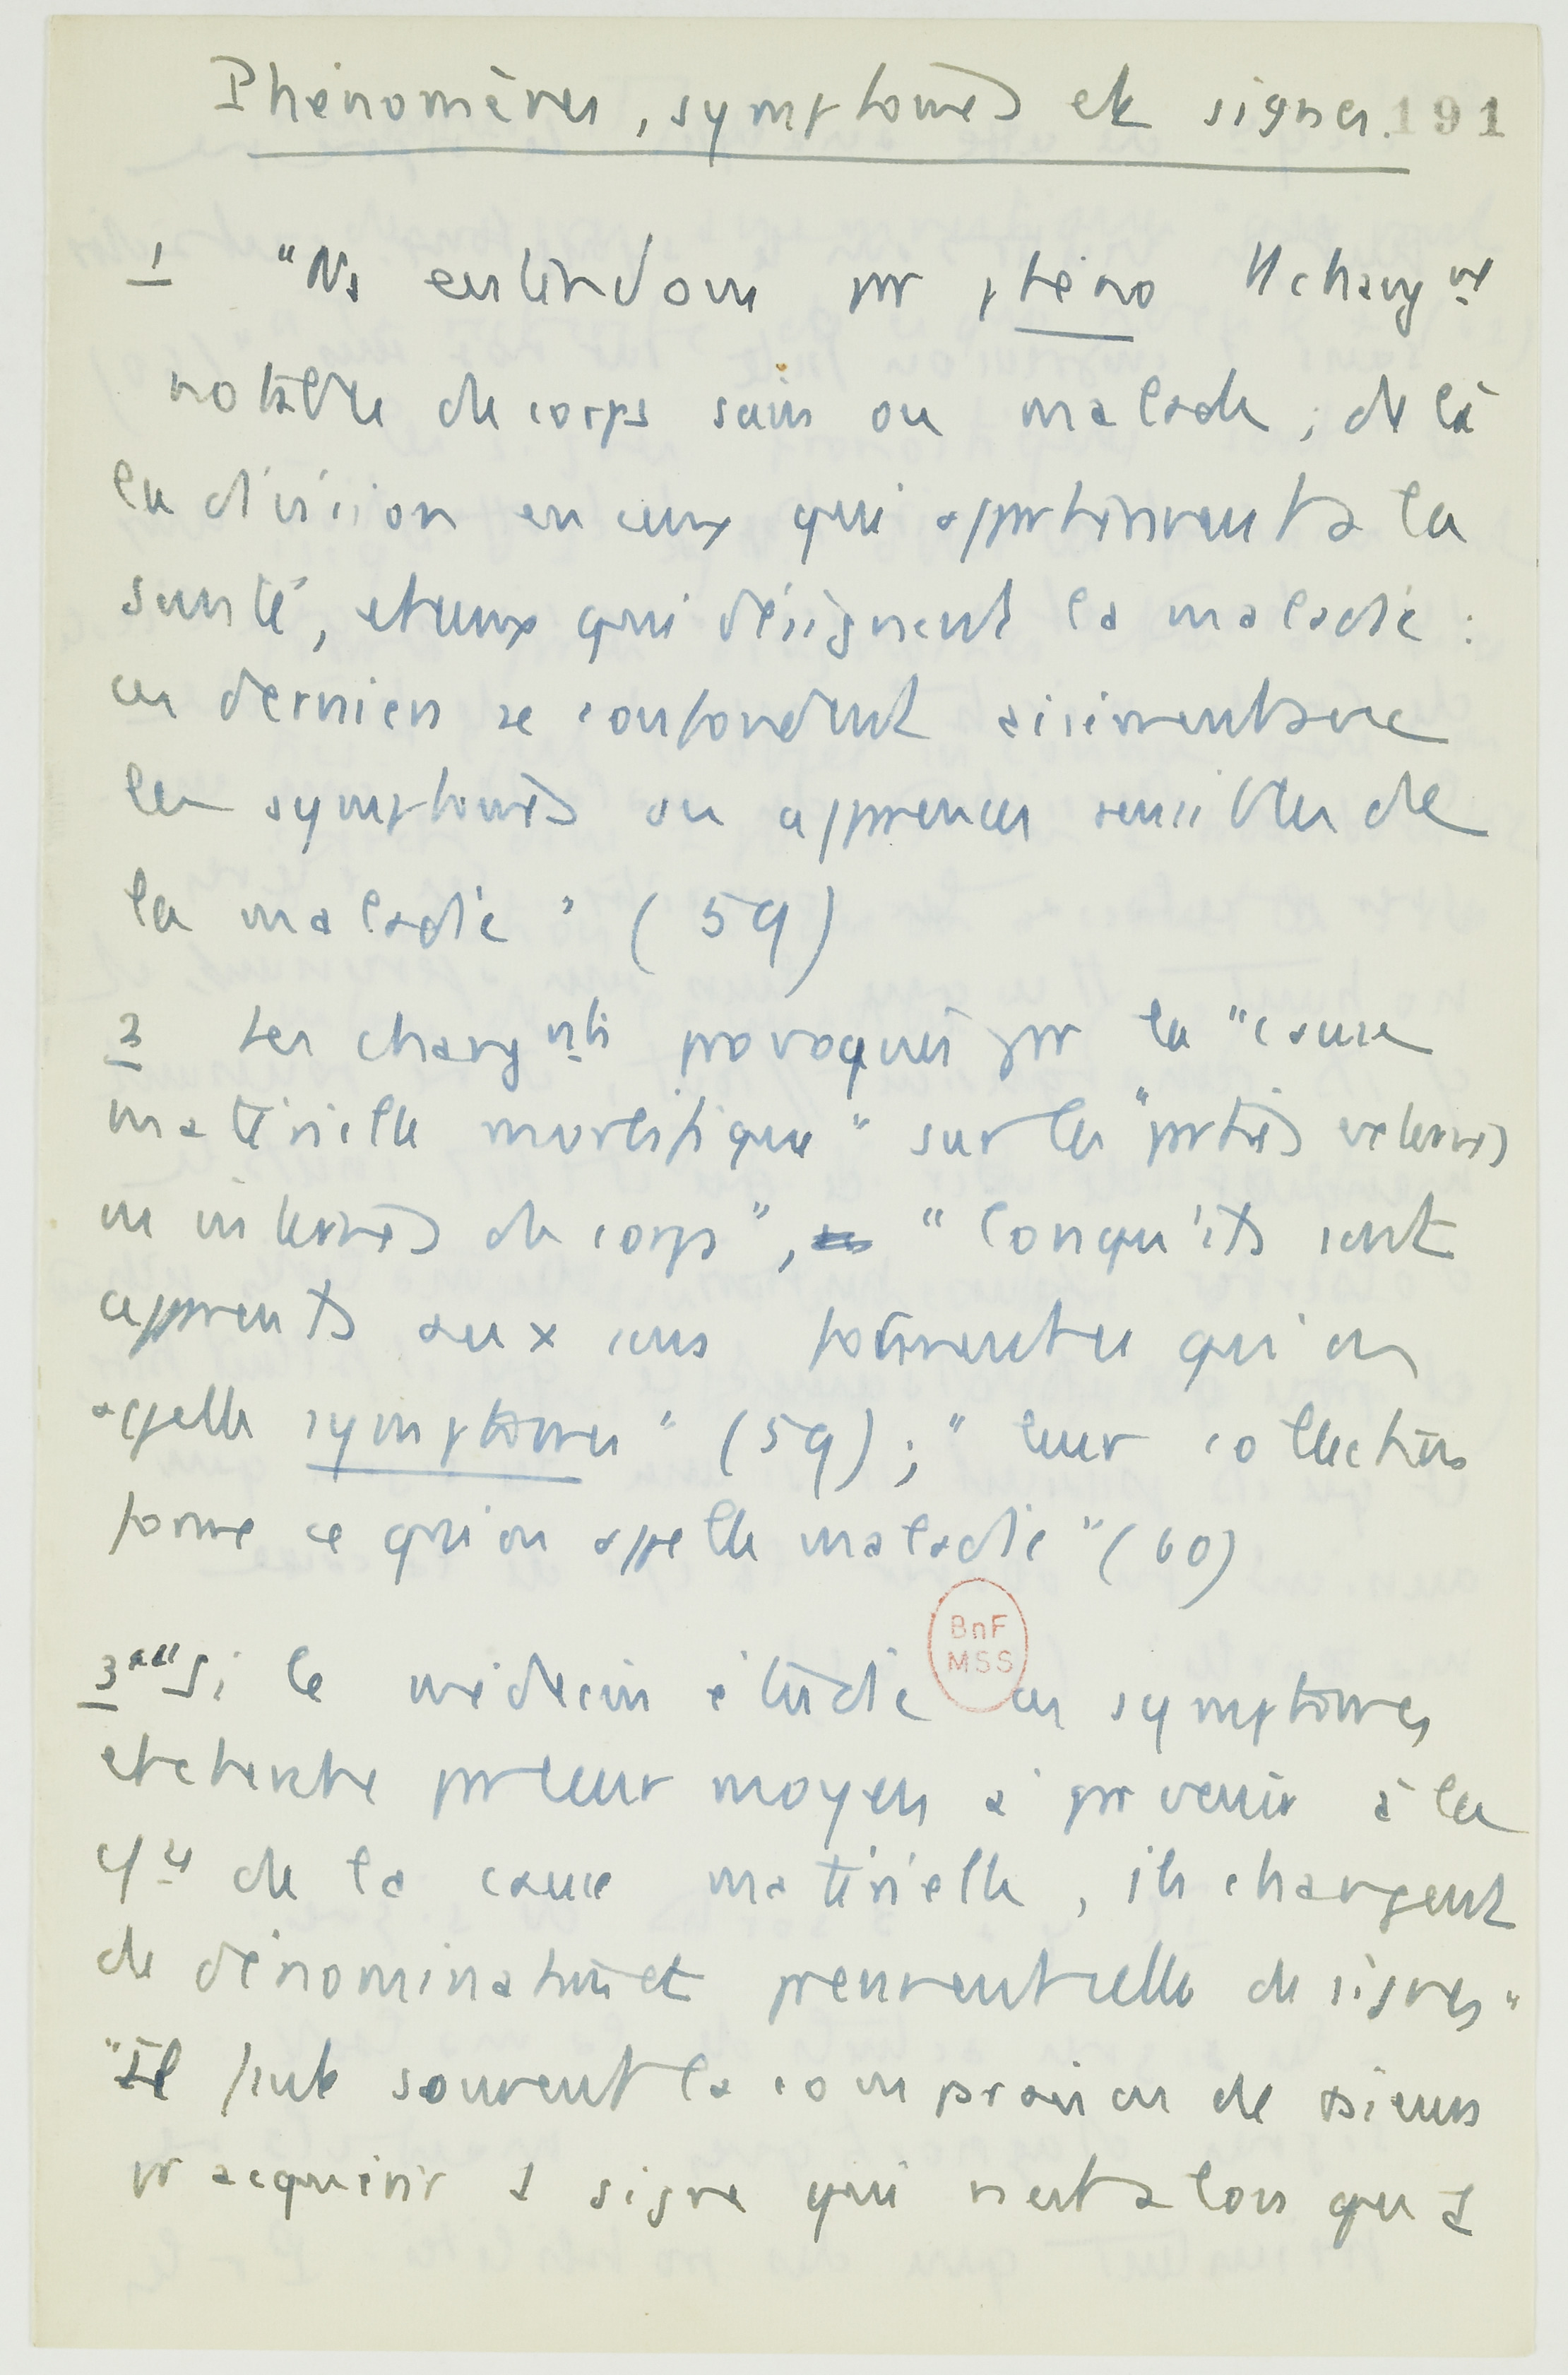 Phénomènes, symptomes et signes. 191
1 "Ns entendons pr phéno tt chang nt
notable du corps sain ou malade ; de là
la division en ceux qui apprtiennent à la
santé, et ceux qui désignent la maladie :
ces derniers se confondent aisément avec
les symptomes ou apprences sensibles de
la maladie" (59)
2 Les chang nts provoqués pr la "cause
matérielle morbifique" sur les "prties externes
ou internes du corps", "lorsqu'ils sont
apprents aux sens forment ce qu'on
appelle symptomes" (59) ; "leur collection
forme ce qu'on appelle maladie" (60)
BnF
MSS
3 "Si le médecin étudie ces symptomes
et cherche pr leur moyen à prvenir à la
de la cause matérielle, ils changent
de dénomination et prennent celle de signes"
"Il faut souvent la compraison de
pr acquérir 1 signe qui n'est alors qu 1